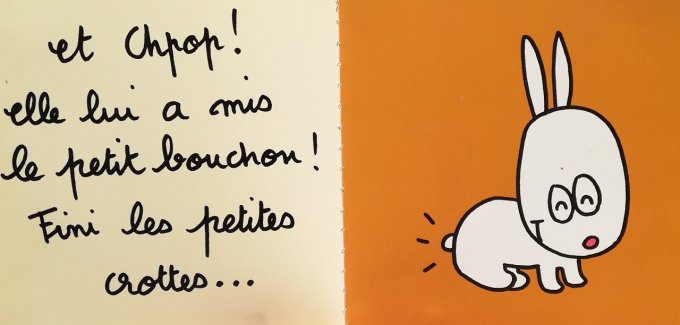 et Chpop!
elle lui a mis
le petit bouchon!
Fini les petites
crottes...